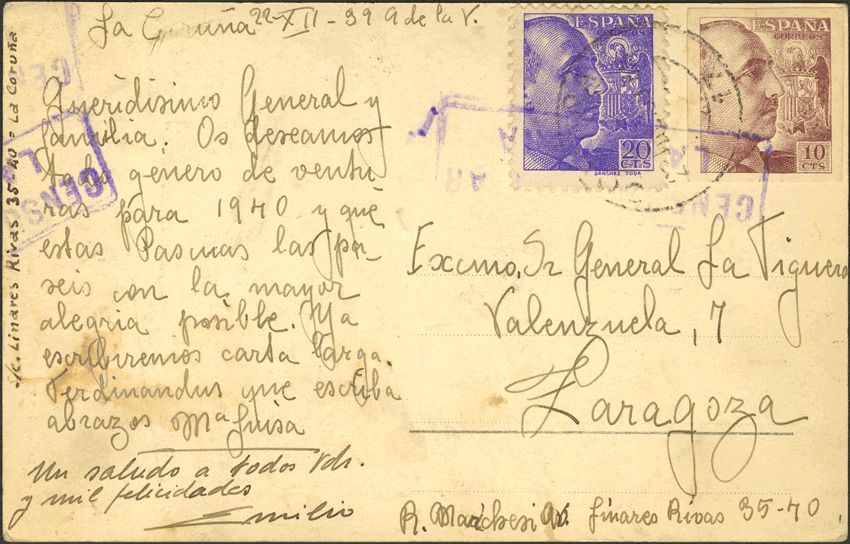 La Coruña 22-XII-39 A de la V.
Queridisimo General y
familia. Os deseamos
todo género de ventu
ras para 1940 y que
estas Pascuas las pa
seis con la mayor
alegria posible. Ya
escribiremos carta larga.
Ferdinandus que escriba
abrazos Mª Luisa
Un saludo a todos Vds.
y mil felicidades
Emilio
s/c. Linares Rivas 35-4º - La Coruña
CENS
ESPAÑA
CORREOS
20
CTS
SANCHEZ TODA
ESPAÑA
CORREOS
10
CTS
CENS
Excmo. Sr General La Figuera
Valenzuela, 7
Zaragoza
R. Marchesi Av. Linares Rivas 35-4º